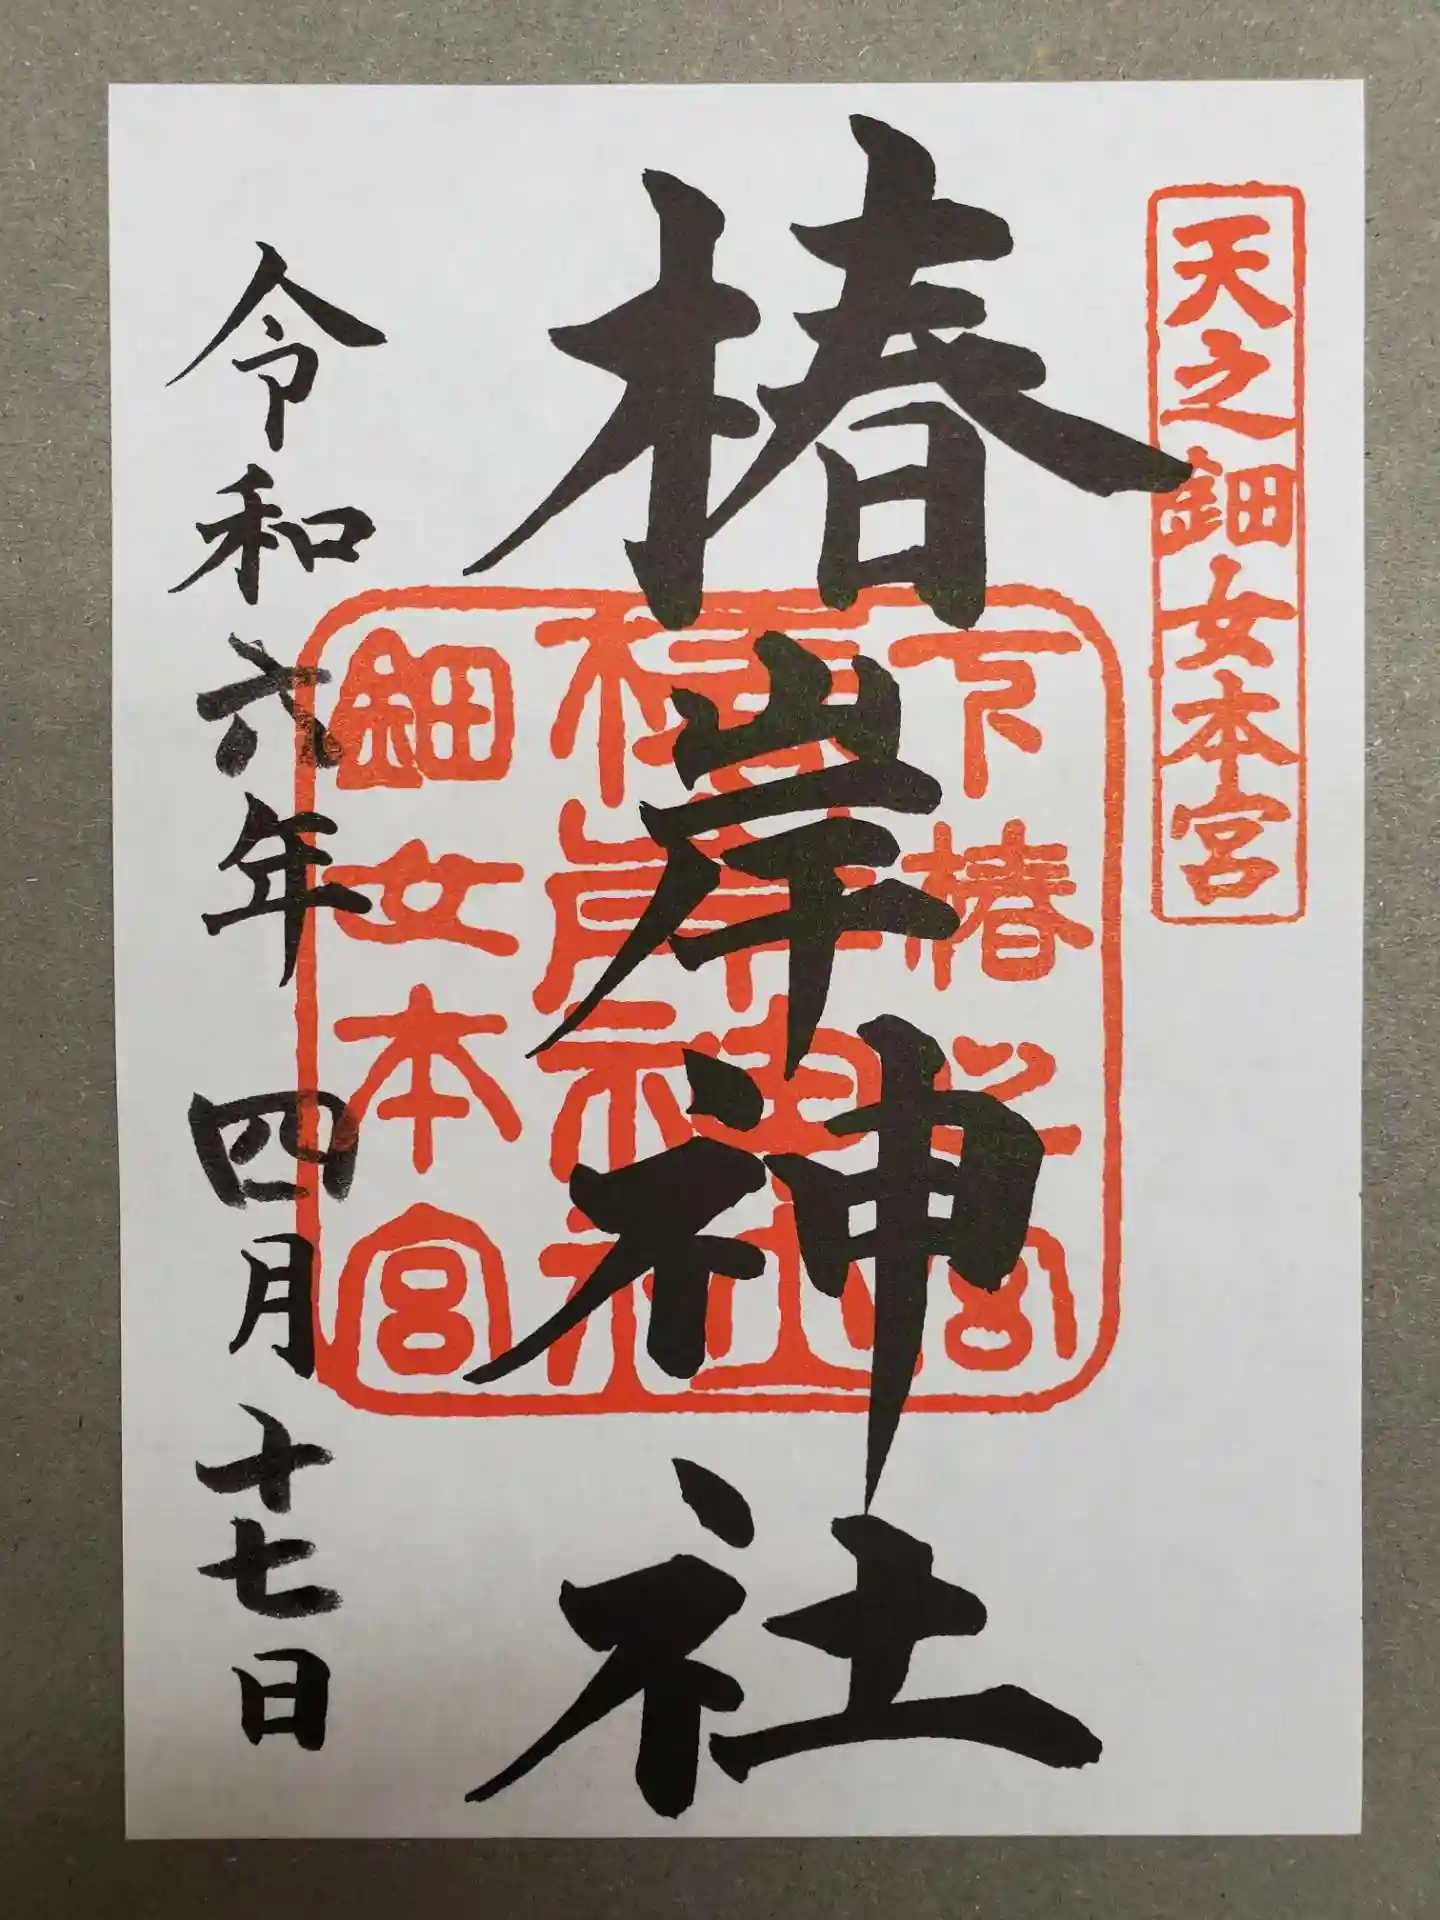 天之鈿女本宮
椿岸神社
下椿之宮
椿岸神社
鈿女本宮
令和六年四月十七日